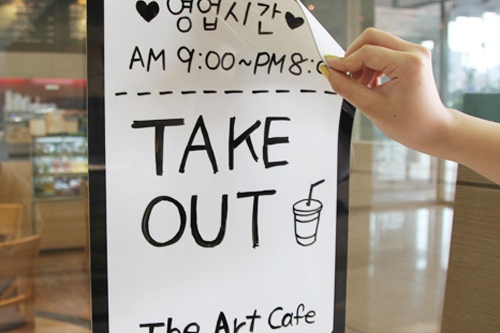 영업시간
AM 9:00~PM 8:
TAKE
OUT
The Art Cafe